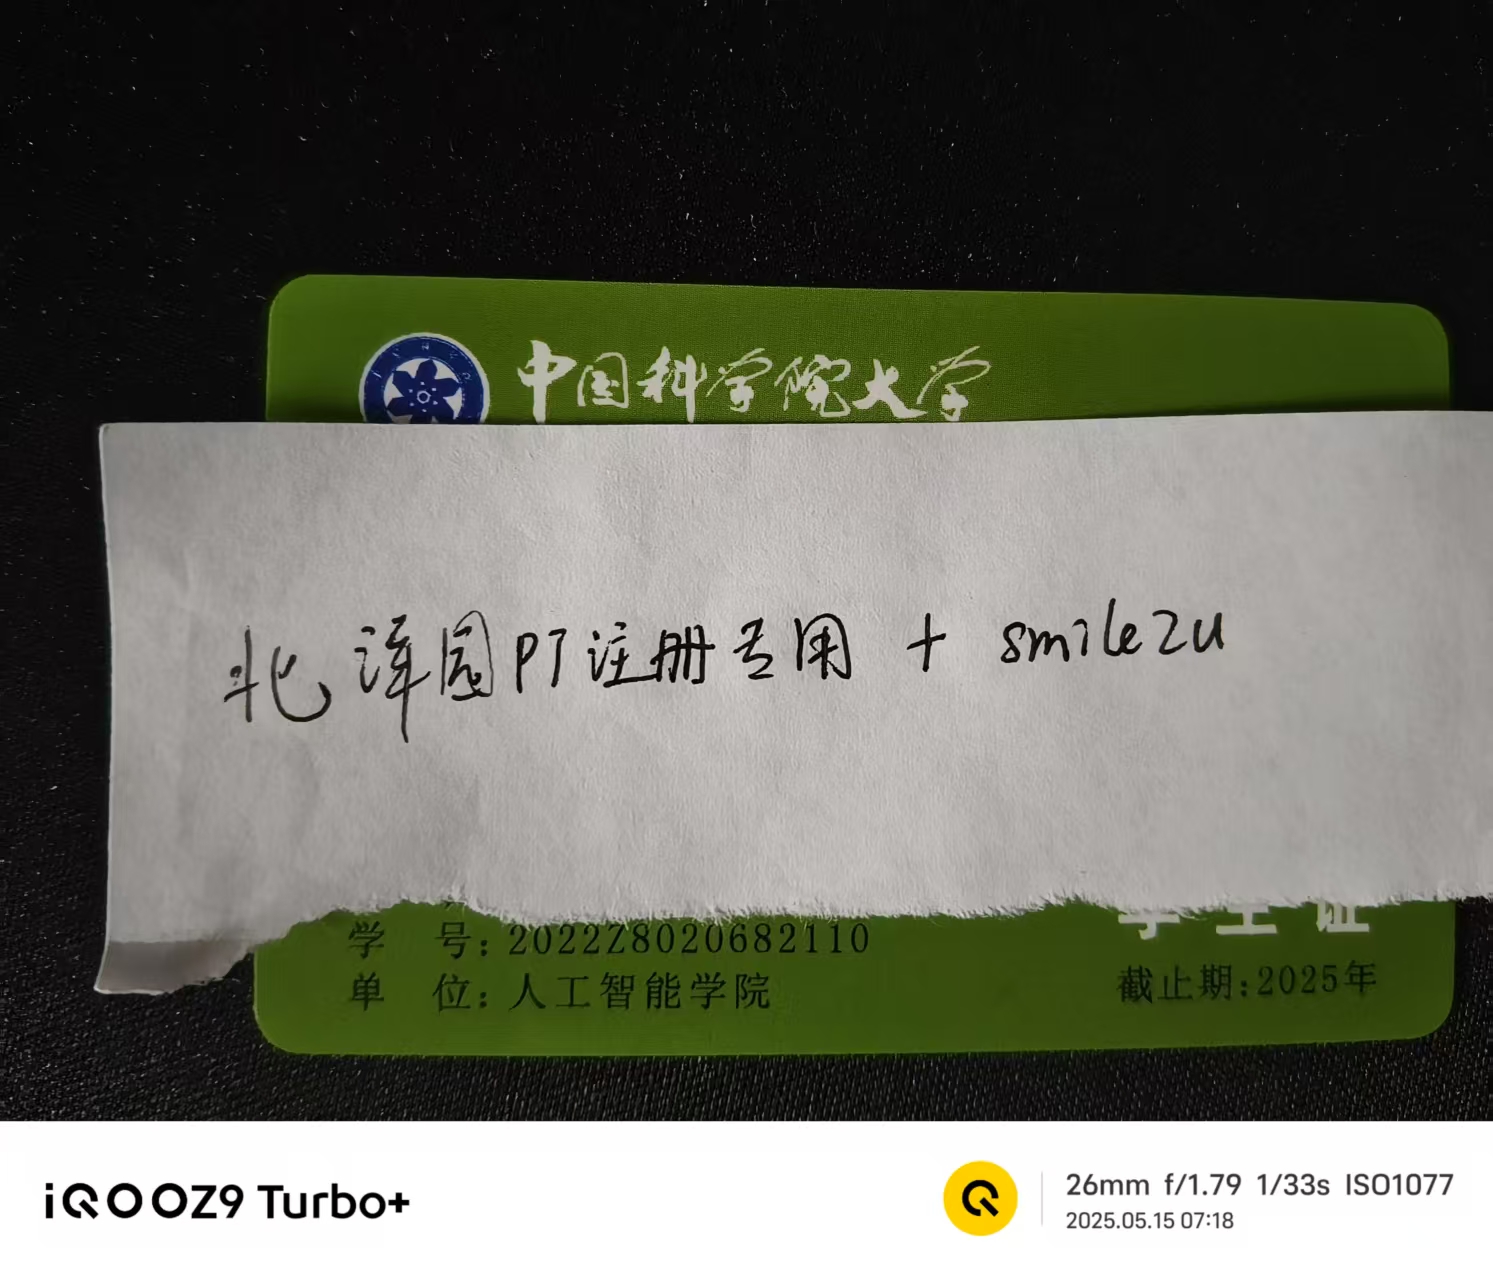 中国科学院大学
北洋园PT注册专用 + smilezu
学 号: 2022Z8020682110
单 位: 人工智能学院
学生证
截止期:2025年
iQOO Z9 Turbo+
26mm f/1.79 1/33s ISO1077
2025.05.15 07:18